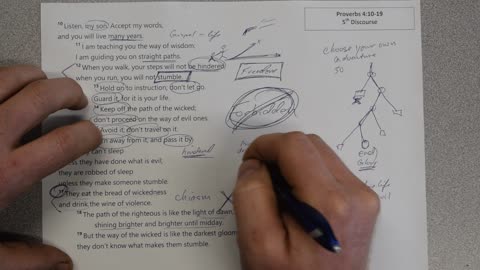 Proverbs 4:10-19
5th Discourse
10 Listen, my son! Accept my words,
and you will live many years.
11 I am teaching you the way of wisdom;
I am guiding you on straight paths.
12 When you walk, your steps will not be hindered;
when you run, you will not stumble.
13 Hold on to instruction; don't let go.
Guard it, for it is your life.
14 Keep off the path of the wicked;
don't proceed on the way of evil ones.
Avoid it; don't travel on it.
away from it, and pass it by
can't sleep
unless they have done what is evil;
they are robbed of sleep
unless they make someone stumble.
17 They eat the bread of wickedness
and drink the wine of violence.
18 The path of the righteous is like the light of dawn,
shining brighter and brighter until midday.
19 But the way of the wicked is like the darkest gloom;
they don't know what makes them stumble.
= life
Freedom
Forbidden
chiasm
choose your own
adventure
end
life